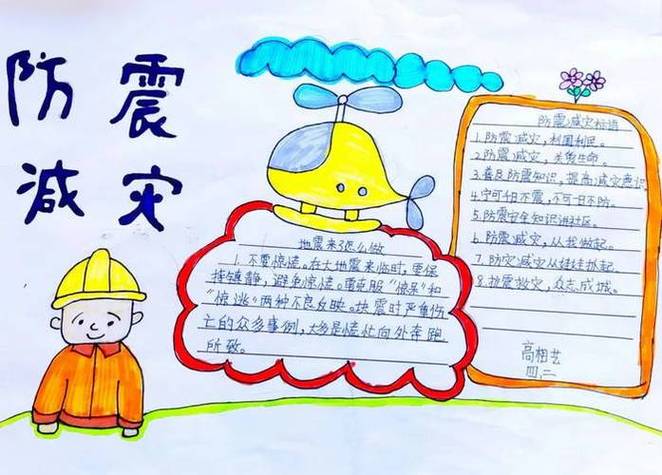 防震
减灾
地震来了怎么做
1.不要惊慌。在大地震来临时,要保
持镇静,避免惊慌。要克服“惊呆”和
“惊逃”两种不良反映。地震时严重伤
亡的众多事例,大多是慌忙向外奔跑
所致。
防震减灾标语
1.防震减灾,利国利民。
2.防震减灾,关爱生命。
3.普及防震知识,提高减灾意识
4.宁可千日不震,不可一日不防。
5.防震安全知识进社区。
6.防震减灾,从我做起。
7.防灾减灾从娃娃抓起。
8.抗震救灾,众志成城。
高相芸
四、二